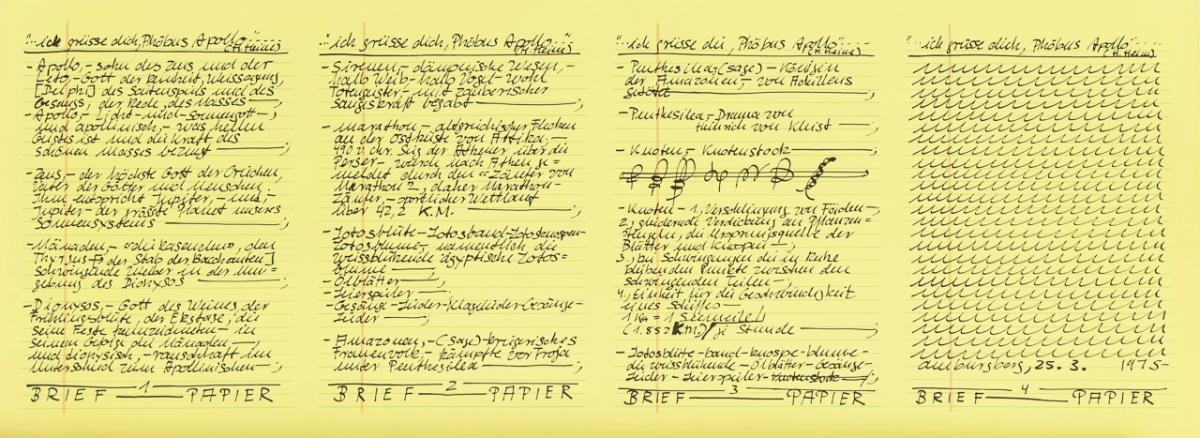 "... ich grüsse dich, Phöbus Apollo" ....
(H. Heine)
- Apollo, - sohn des Zeus und der
Leto, - Gott der Weissagung,
[Delphi] des Saitenspiels und des
Gesangs, der Rede, des Masses ——;
- Apollo, - Licht - und - Sonnengott -,
und apollinisch, - was hellen
Geistes ist und die Kraft des
schönen Masses bezeugt ——;
- Zeus, - der höchste Gott der Griechen,
Vater der Götter und Menschen.
Ihm entspricht Jupiter, - und, -
Jupiter - der grösste Planet unseres
Sonnensystems ——;
- Mänaden, - "die Rasenden", den
Thyrsus [der Stab der Bacchanten]
schwingende Weiber in der Um=
gebung des Dionysos ——;
- Dionysos, - Gott des Weines der
Frühlingsblüte, der Ekstase, die
seine Feste kennzeichneten - in
seinem Gefolge die Mänaden —;
und dionysisch, - rauschhaft im
Unterschied zum Apollinischen —;
BRIEF — 1 — PAPIER
"... ich grüsse dich, Phöbus Apollo" ....
(H. Heine)
- Sirenen, - dämonische Wesen, -
halb Weib - halb Vogel - wohl
Totengeister - mit zauberischer
Sangeskraft begabt ——;
- Marathon, - altgriechischer Flecken
an der Ostküste von Attika,
490 v Chr. Sieg der Athener über die
Perser - wurde nach Athen ge=
meldet durch den "Läufer von
Marathon", daher Marathon-
Läufer, - sportlicher Wettlauf
über 42,2 K.M. ——;
- Lotosblüte - Lotosband - Lotosknospen -
Lotosblume, - namentlich die
weissblühende ägyptische Lotos=
blume ——;
- Ölblätter ——;
- Leierspieler ——;
- Gesänge - Lieder - Klagelieder - Gesänge -
Lieder ——;
- Amazonen, - (Sage) - kriegerisches
Frauenvolk, - kämpfte vor Troja
unter Penthesilea ——;
BRIEF — 2 — PAPIER
"... ich grüsse dich, Phöbus Apollo" ....
(H. Heine)
- Penthesilea (Sage) - Königin
der Amazonen, - von Achilleus
getötet ——;
- Penthesilea, - Drama von
Heinrich von Kleist ——;
- Knoten, - Knotenstock ——;
- Knoten - 1, Verschlingung von Fäden -,
2, gliedernde Verdickung an Pflanzen=
stengeln, die Ursprungsstelle der
Blätter und Knospen —;
3, bei Schwingungen die in Ruhe
bleibenden Punkte zwischen den
schwingenden Teilen -,
4, Einheit für die Geschwindigkeit
eines Schiffes -
1 Kn = 1 Seemeile
(1.852 Km)/je Stunde ——;
- Lotosblüte - band - knospe - blume -
die weissblühende - Ölblätter - Gesänge -
Lieder - Leierspieler - Knotenstock —;
BRIEF — 3 — PAPIER
"... ich grüsse dich, Phöbus Apollo" ....
(H. Heine)
25. 3. 1975-
BRIEF — 4 — PAPIER